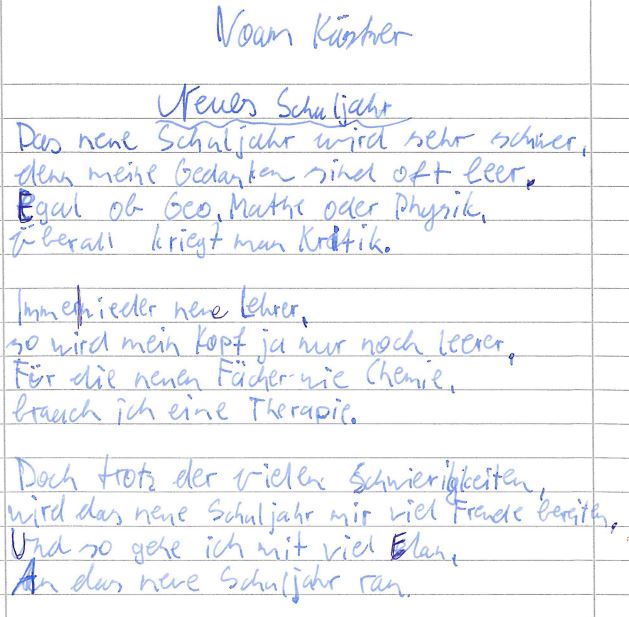 Noam Küstner
Neues Schuljahr
Das neue Schuljahr wird sehr schwer,
denn meine Gedanken sind oft leer.
Egal ob Geo, Mathe oder Physik,
überall kriegt man Kritik.
Immer wieder neue Lehrer,
so wird mein Kopf ja nur noch leerer,
Für die neuen Fächer wie Chemie,
brauch ich eine Therapie.
Doch trotz der vielen Schwierigkeiten,
wird das neue Schuljahr mir viel Freude bereiten,
Und so gehe ich mit viel Elan,
An das neue Schuljahr ran.